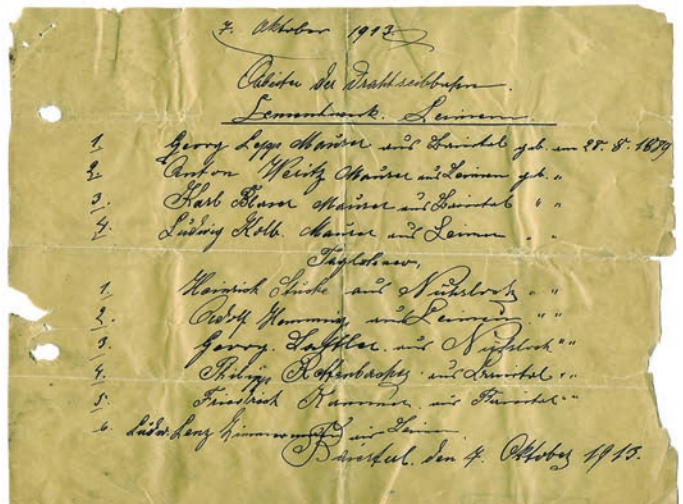 7. Oktober 1913.
Arbeiter der Drahtseilbahn.
Zementwerk. Leimen.
1. Georg Lepp Maurer aus Baiertal geb. am 28. 8. 1879
2. Anton Weritz Maurer aus Leimen geb. "
3. Karl Maurer aus Baiertal " "
4. Ludwig Kolb. Maurer aus Leimen " "
Taglöhner,
1. Heinrich Stucke aus Nußloch " "
2. Adolf Hemming aus Leimen " "
3. Georg. aus Nußloch " "
4. Philipp aus Baiertal " "
5. Friedrich aus Baiertal " "
6. Ludw. Lenz Zimmermann aus Leimen
Baiertal. den 7. Oktober 1913.